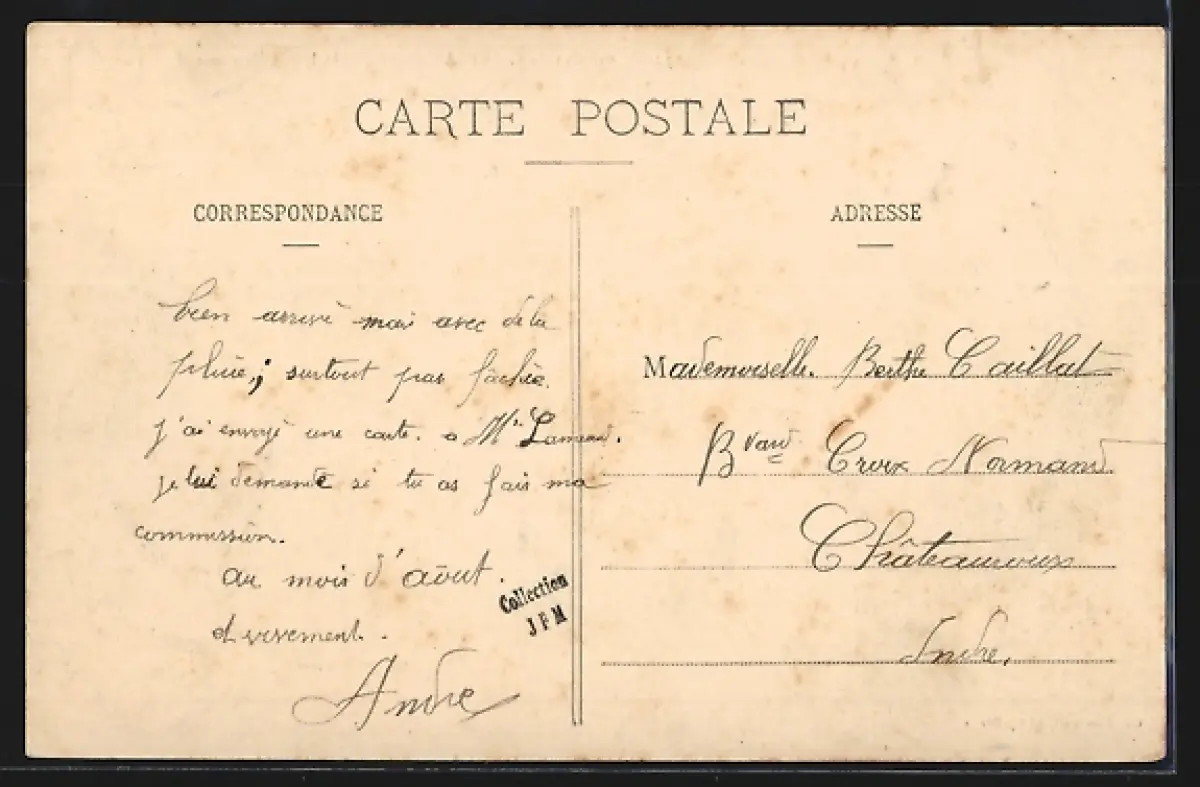 CARTE POSTALE
CORRESPONDANCE
ADRESSE
bien arrivé mais avec de la
pluie, surtout pas fachée.
j'ai envoyé une carte. a
je lui demande si tu as fais ma
commission.
au mois d'août.
et vivement.
André
Collection
JFM
Mademoiselle Berthe Caillat
Bvard Croix Normand
Châteauroux
Indre.